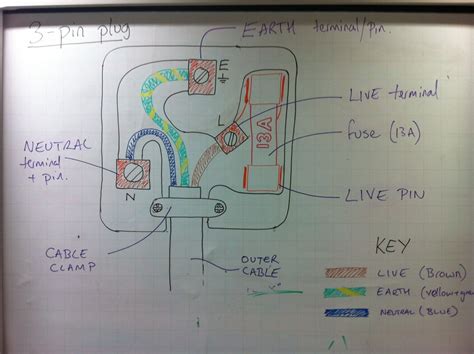 3-pin plug
EARTH terminal/pin.
E
LIVE terminal
L
fuse (13A)
13A
NEUTRAL
terminal
+ pin.
N
LIVE PIN
CABLE
CLAMP
OUTER
CABLE
KEY
LIVE (Brown)
EARTH (yellow+green
NEUTRAL (BLUE)